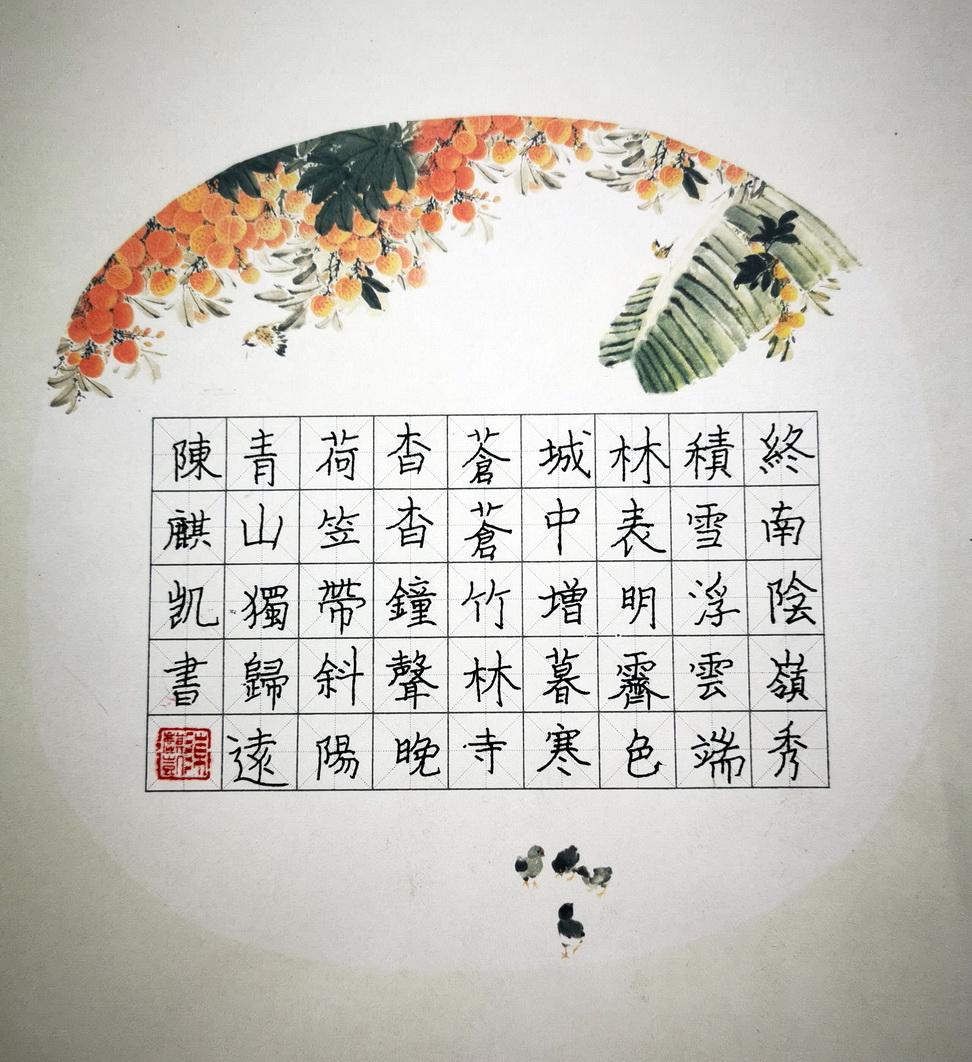 終南陰嶺秀
積雪浮雲端
林表明霽色
城中增暮寒
蒼蒼竹林寺
杳杳鐘聲晚
荷笠帶斜陽
青山獨歸遠
陳麒凱書